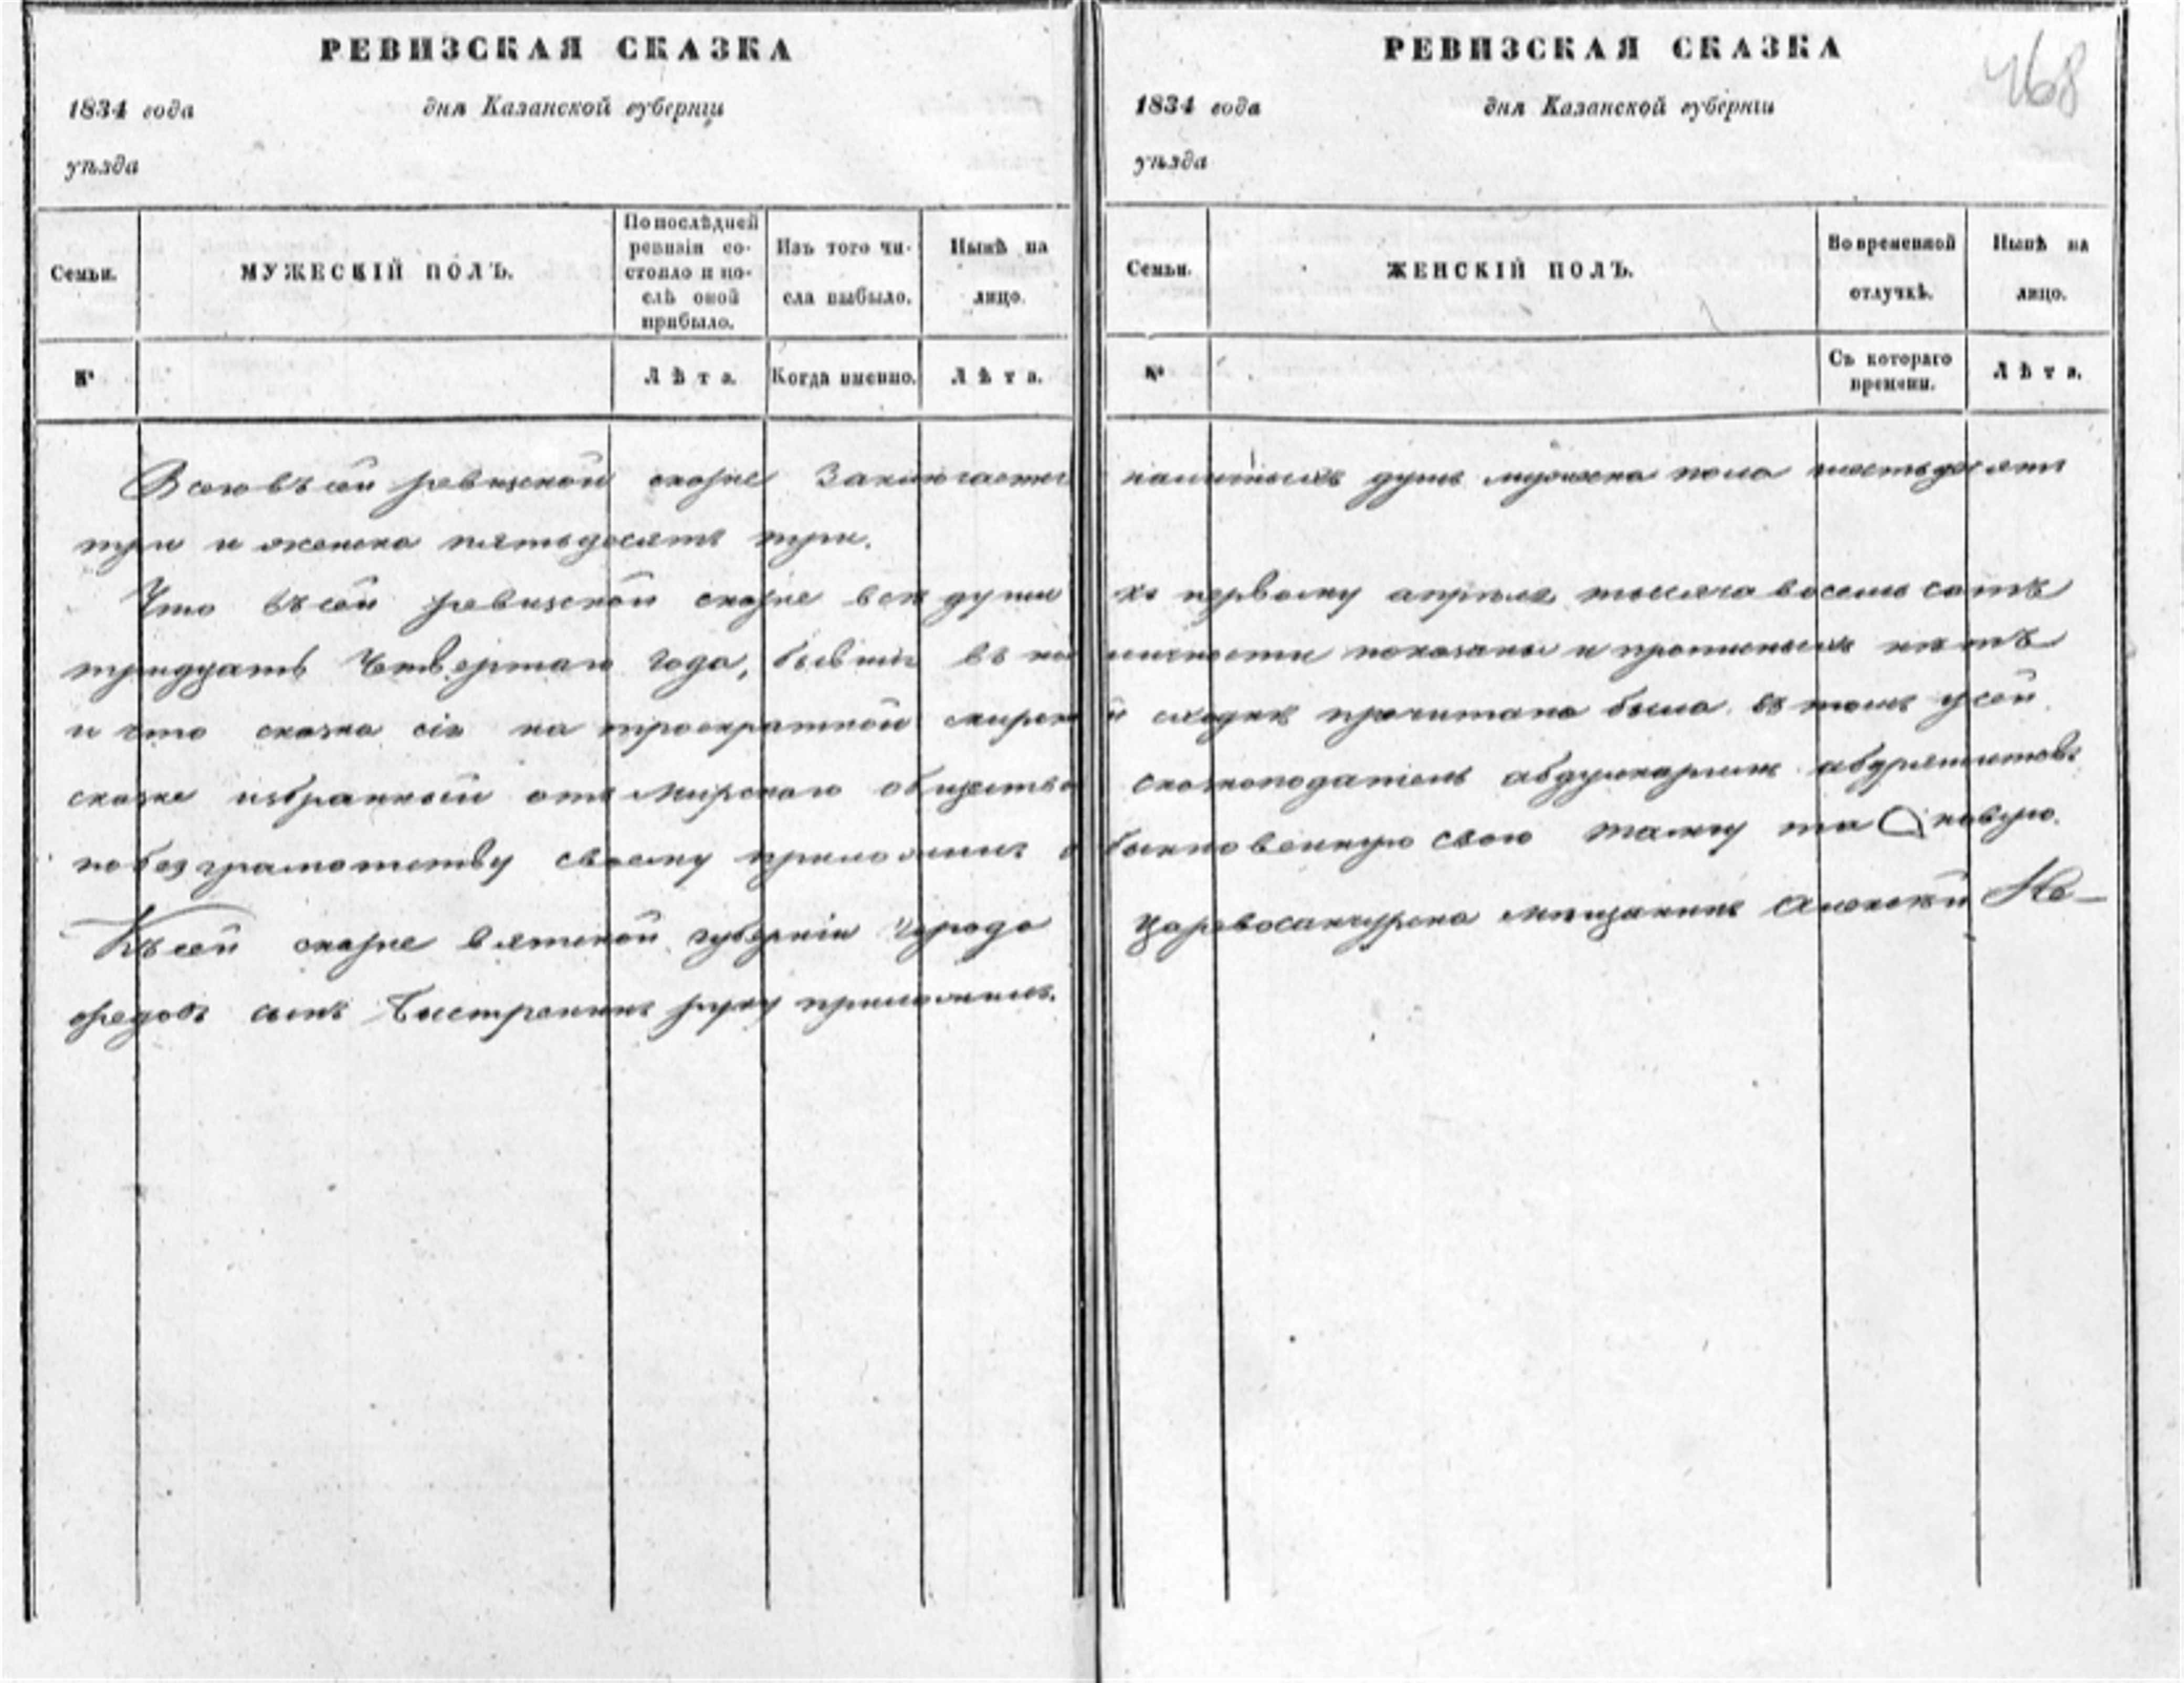 РЕВИЗСКАЯ СКАЗКА
1834 года дня Казанской губерніи
уѣзда
Семьи.
МУЖЕСКІЙ ПОЛЪ.
По послѣдней ревизіи со-
стояло и по-
слѣ оной
прибыло.
Изъ того чи-
сла выбыло.
Нынѣ на
лицо.
№
Лѣта.
Когда именно.
Лѣта.
РЕВИЗСКАЯ СКАЗКА
468
1834 года дня Казанской губерніи
уѣзда
Семьи.
ЖЕНСКІЙ ПОЛЪ.
Во временной
отлучкѣ.
Нынѣ на
лицо.
№
Съ котораго
времени.
Лѣта.
Всего въ сей ревизской скаске заключается наличныхъ душъ мужеска пола шестьдесятъ
три и женска пятьдесятъ три.
Что въ сей ревизской скаске все души къ первому апреля тысяча восемь сотъ
тридцать четвертаго года, бывшіе въ наличности показаны и прописныхъ нѣтъ
и что сказка сія на троекратной мирской сходкѣ прочитана была въ томъ у сей
сказке избранный отъ мирскаго общества сказкоподатель абдулкаримъ абдряшитовъ
по безграмотству своему приложилъ обыкновенную свою тамгу таковую.
Къ сей скаске вятской губерніи города царевосанчурска мещанинъ Алексѣй Не-
федовъ сынъ Быстренинъ руку приложилъ.